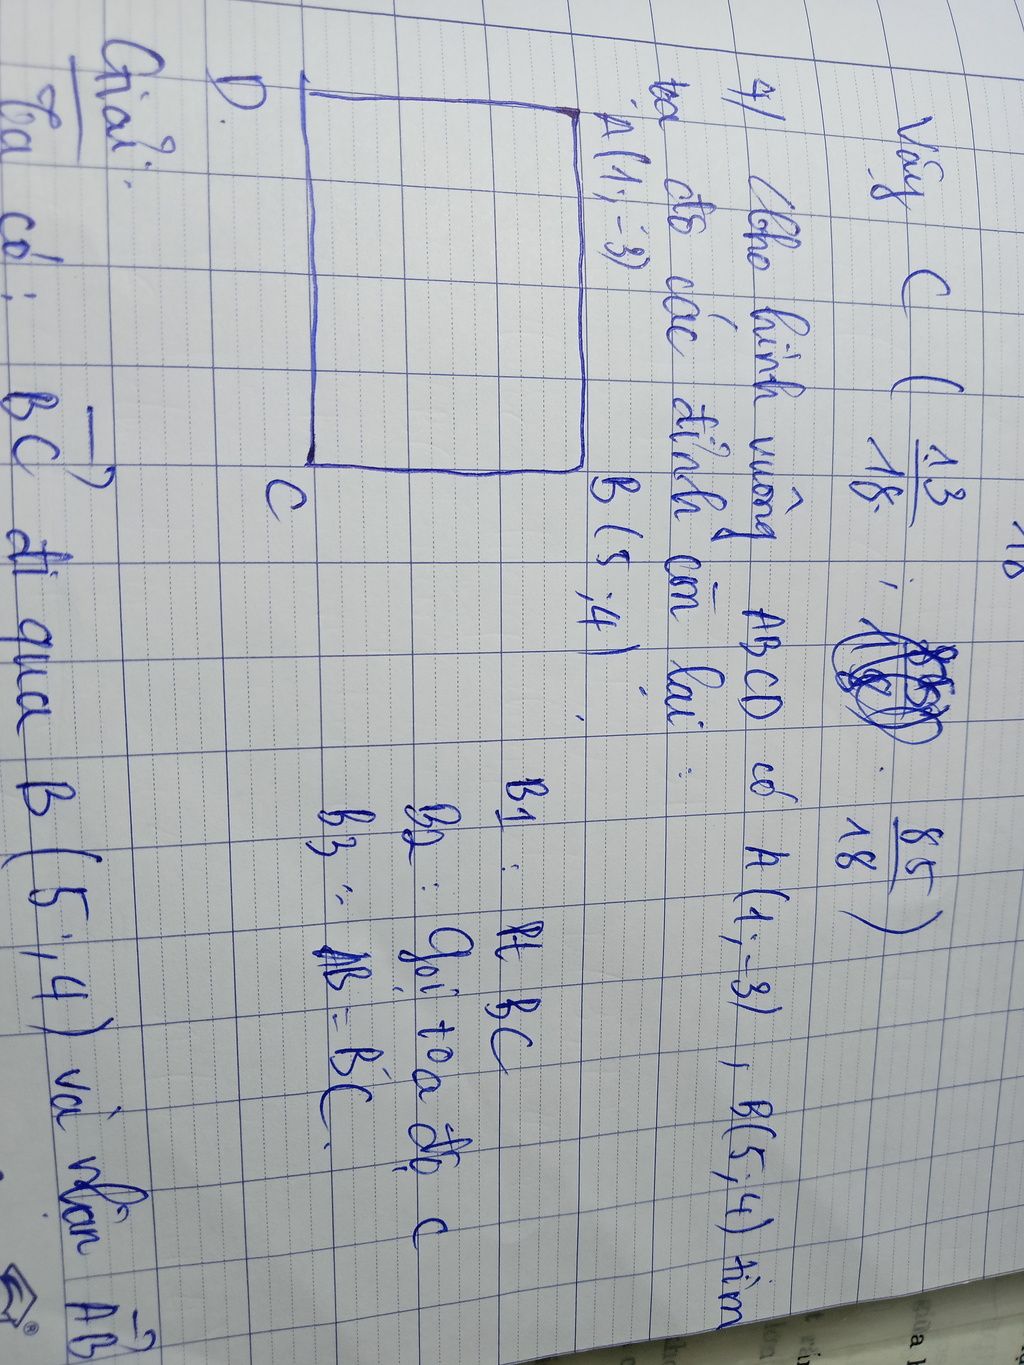 18
Vậy C ( 13/18 ; 85/18 )
7/ Cho hình vuông ABCD có A(1;-3), B(5;4) tìm
tọa độ các đỉnh còn lại:
A(1;-3) B(5;4)
B1: Pt BC
B2: Gọi tọa độ C
B3: AB = BC.
D. C
Giải:
Ta có: BC đi qua B(5;4) và nhận AB